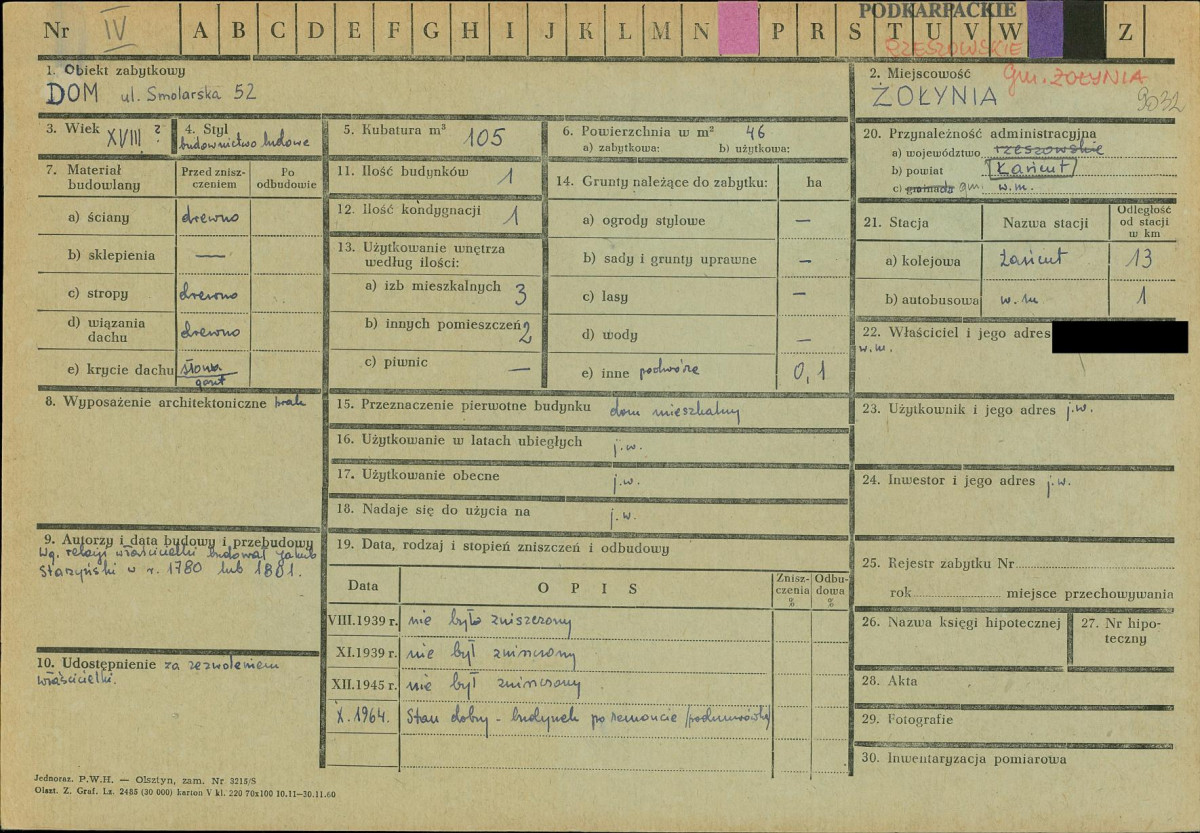 Nr IV A B C D E F G H I J K L M N P R S T U V W Z
PODKARPACKIE
RZESZOWSKIE
gm. ŻOŁYNIA
1. Obiekt zabytkowy
DOM ul. Smolarska 52
2. Miejscowość
ŻOŁYNIA
9032
3. Wiek XVIII ?
4. Styl
budownictwo ludowe
5. Kubatura m³ 105
6. Powierzchnia w m² 46
a) zabytkowa: b) użytkowa:
7. Materiał budowlany
Przed zniszczeniem
Po odbudowie
a) ściany drewno
b) sklepienia —
c) stropy drewno
d) wiązania dachu drewno
e) krycie dachu słoma
gont
8. Wyposażenie architektoniczne brak
9. Autorzy i data budowy i przebudowy
Wg. relacji właścicielki budował Jakub
Starzyński w r. 1780 lub 1801.
10. Udostępnienie za zezwoleniem
właścicielki.
11. Ilość budynków 1
12. Ilość kondygnacji 1
13. Użytkowanie wnętrza
według ilości:
a) izb mieszkalnych 3
b) innych pomieszczeń 2
c) piwnic —
14. Grunty należące do zabytku: ha
a) ogrody stylowe —
b) sady i grunty uprawne —
c) lasy —
d) wody —
e) inne podwórze 0,1
15. Przeznaczenie pierwotne budynku dom mieszkalny
16. Użytkowanie w latach ubiegłych j.w.
17. Użytkowanie obecne j.w.
18. Nadaje się do użycia na j.w.
19. Data, rodzaj i stopień zniszczeń i odbudowy
Data O P I S Zniszczenia % Odbudowa %
VIII.1939 r. nie było zniszczony
XI.1939 r. nie był zniszczony
XII.1945 r. nie był zniszczony
X.1964. Stan dobry - budynek po remoncie /podmurówka/
20. Przynależność administracyjna
a) województwo rzeszowskie
b) powiat Łańcut
c) gromada gm. w.m.
21. Stacja Nazwa stacji Odległość od stacji w km
a) kolejowa Łańcut 13
b) autobusowa w.m. 1
22. Właściciel i jego adres
w.m.
23. Użytkownik i jego adres j.w.
24. Inwestor i jego adres j.w.
25. Rejestr zabytku Nr
rok miejsce przechowywania
26. Nazwa księgi hipotecznej
27. Nr hipoteczny
28. Akta
29. Fotografie
30. Inwentaryzacja pomiarowa
Jednoraz. P.W.H. — Olsztyn, zam. Nr 3215/S
Olszt. Z. Graf. Lz. 2485 (30 000) karton V kl. 220 70x100 10.11—30.11.60